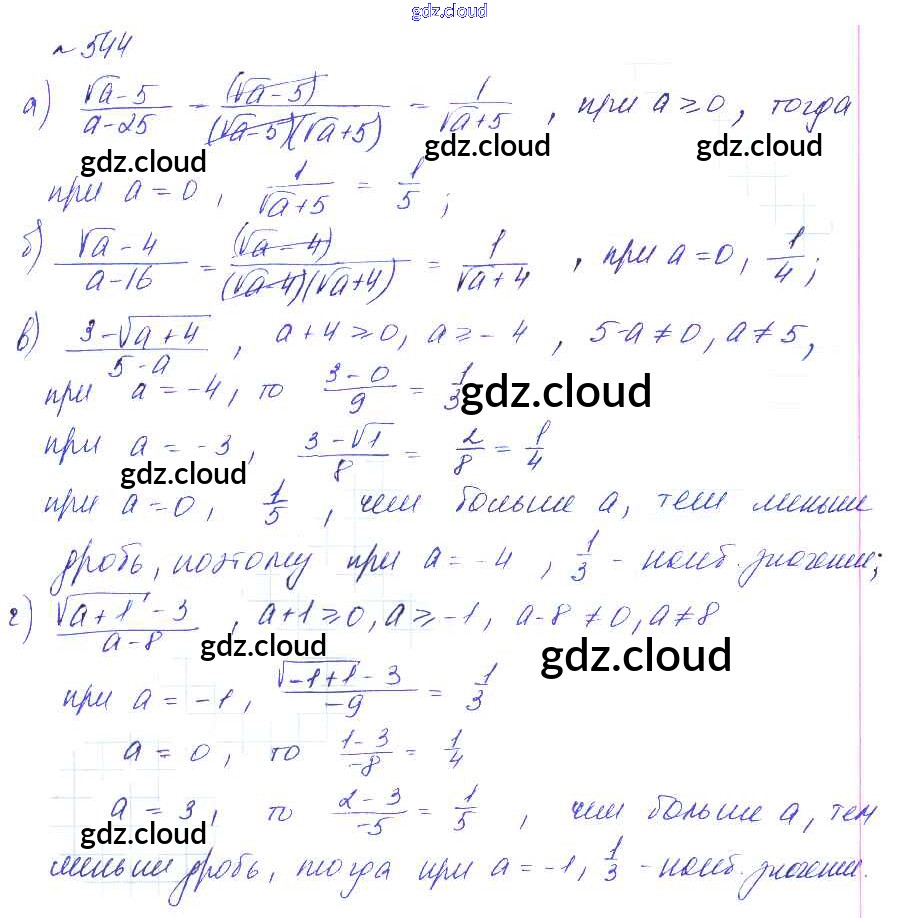 gdz.cloud
~ 544
а) (√a - 5)/(a - 25) = (√a - 5)/((√a - 5)(√a + 5)) = 1/(√a + 5), при a ≥ 0, тогда
gdz.cloud gdz.cloud gdz.cloud
при a = 0, 1/(√a + 5) = 1/5;
б) (√a - 4)/(a - 16) = (√a - 4)/((√a - 4)(√a + 4)) = 1/(√a + 4), при a = 0, 1/4;
в) (3 - √(a + 4))/(5 - a), a + 4 ≥ 0, a ≥ - 4, 5 - a ≠ 0, a ≠ 5,
при a = -4, то (3 - 0)/9 = 1/3 gdz.cloud
при a = -3, (3 - √1)/8 = 2/8 = 1/4
gdz.cloud
при a = 0, 1/5, чем больше a, тем меньше
дробь, поэтому при a = -4, 1/3 - наиб. значение;
г) (√(a + 1) - 3)/(a - 8), a + 1 ≥ 0, a ≥ -1, a - 8 ≠ 0, a ≠ 8
gdz.cloud gdz.cloud
при a = -1, (√(-1+1) - 3)/(-9) = 1/3
a = 0, то (1 - 3)/(-8) = 1/4
a = 3, то (2 - 3)/(-5) = 1/5, чем больше a, тем
gdz.cloud gdz.cloud
меньше дробь, тогда при a = -1, 1/3 - наиб. значение.